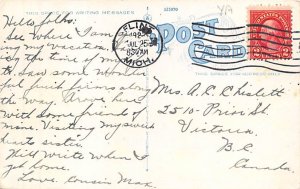 THIS SPACE FOR WRITING MESSAGES
Hello folks:
See where I am
my vacation.
this time of
and saw some wonderful
friends along
the way. Drove here
with some friends of
mine. Visiting my sweet
hearts sister.
Will write when I
get home.
Love. Cousin Max.
FLINT
JUL 25
830 AM
MICH.
POST
CARD
THIS SPACE FOR ADDRESS ONLY
Mrs. A. C.
2510- Prior St.
Victoria.
B.C
Canada.